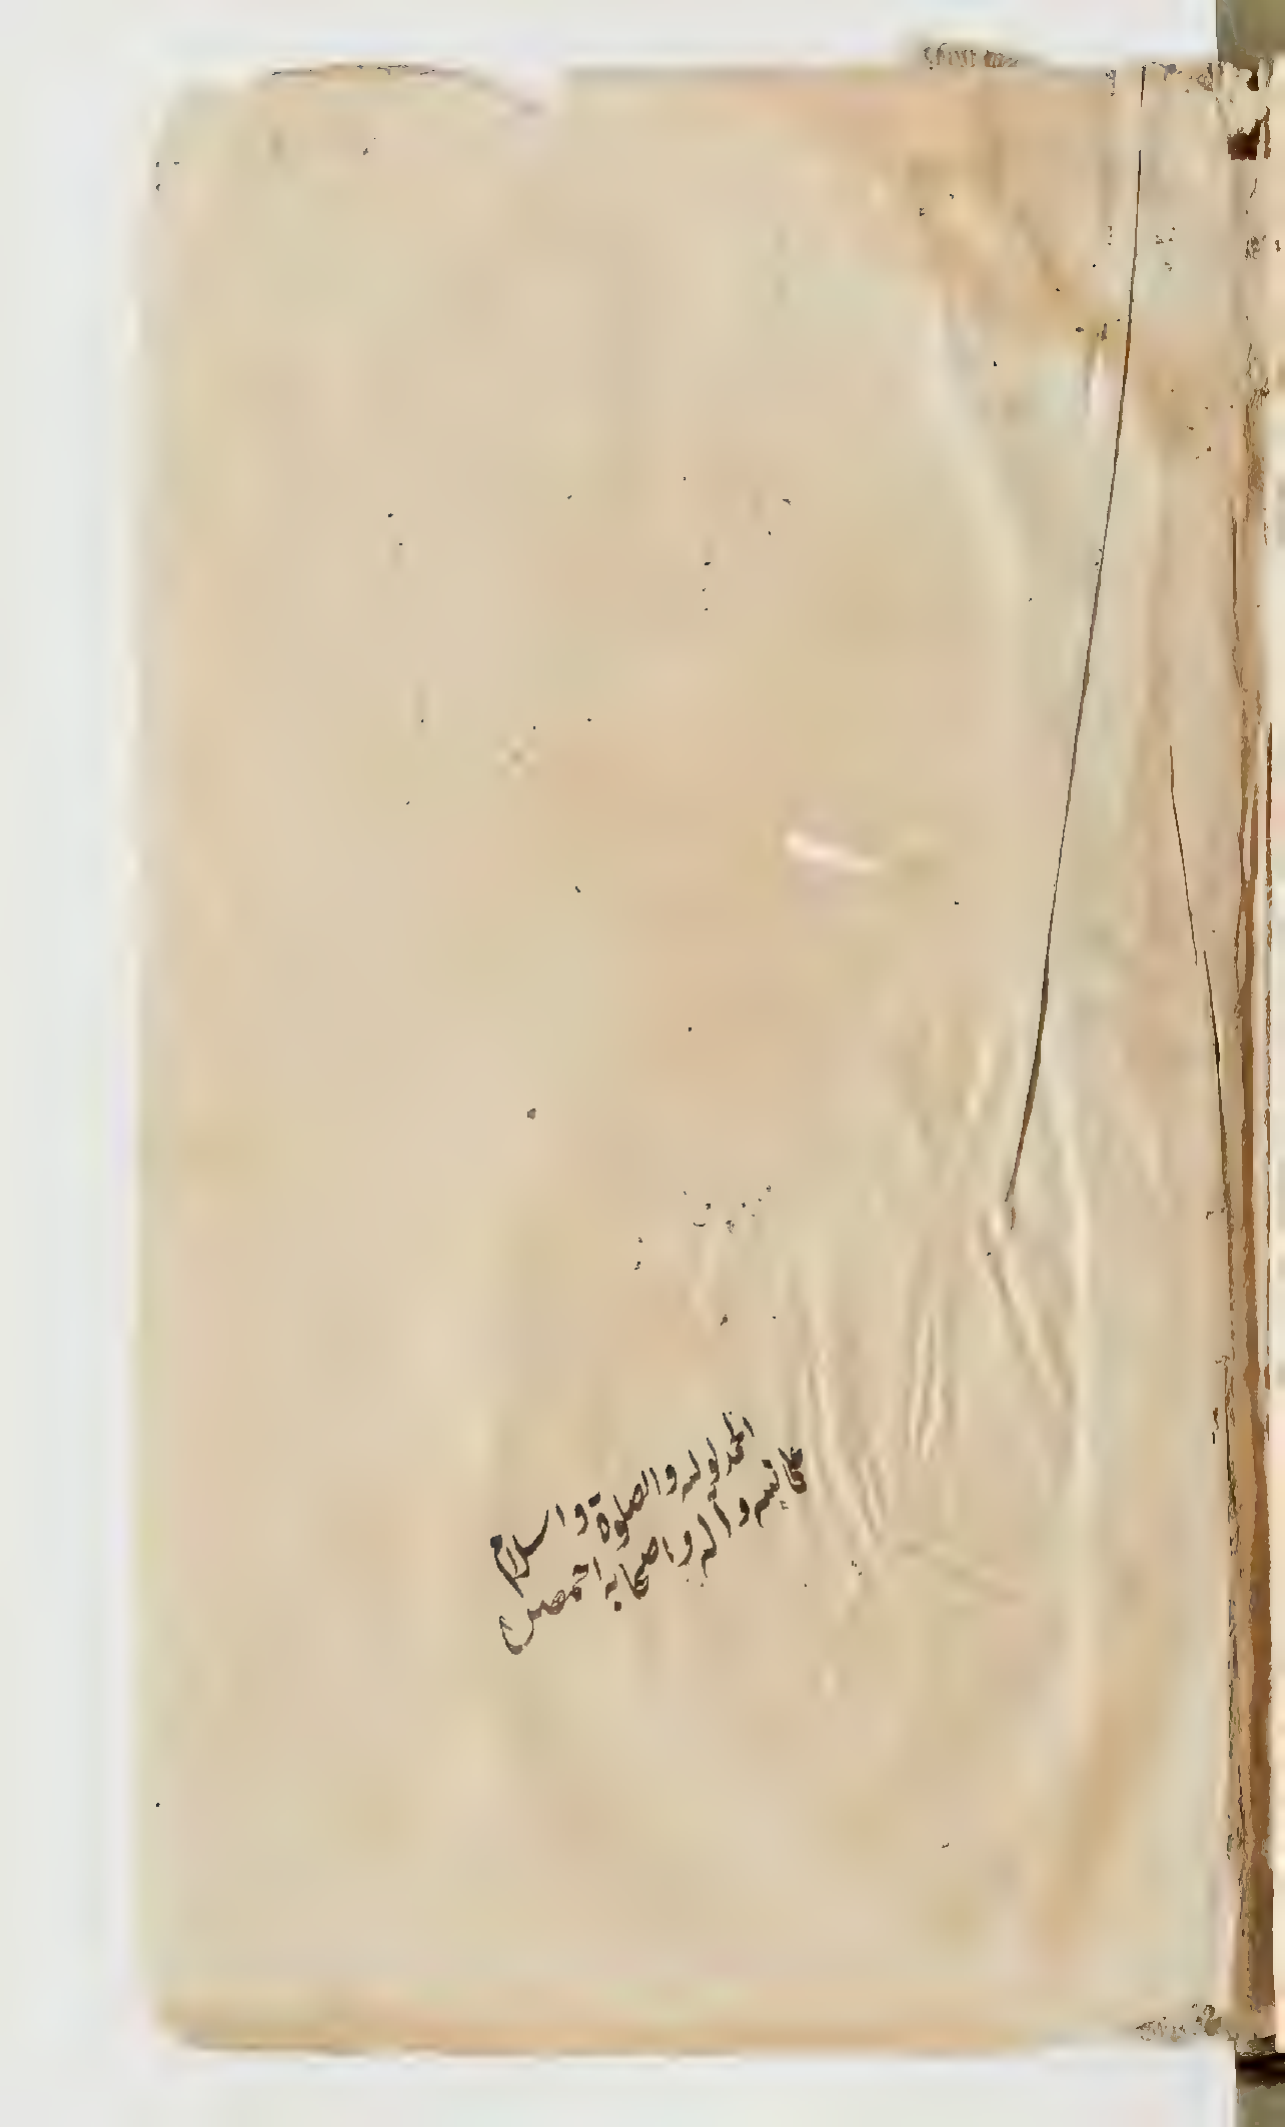 الحمد لوليه والصلوة واسلام
على نبيه وآله واصحابه اجمعين